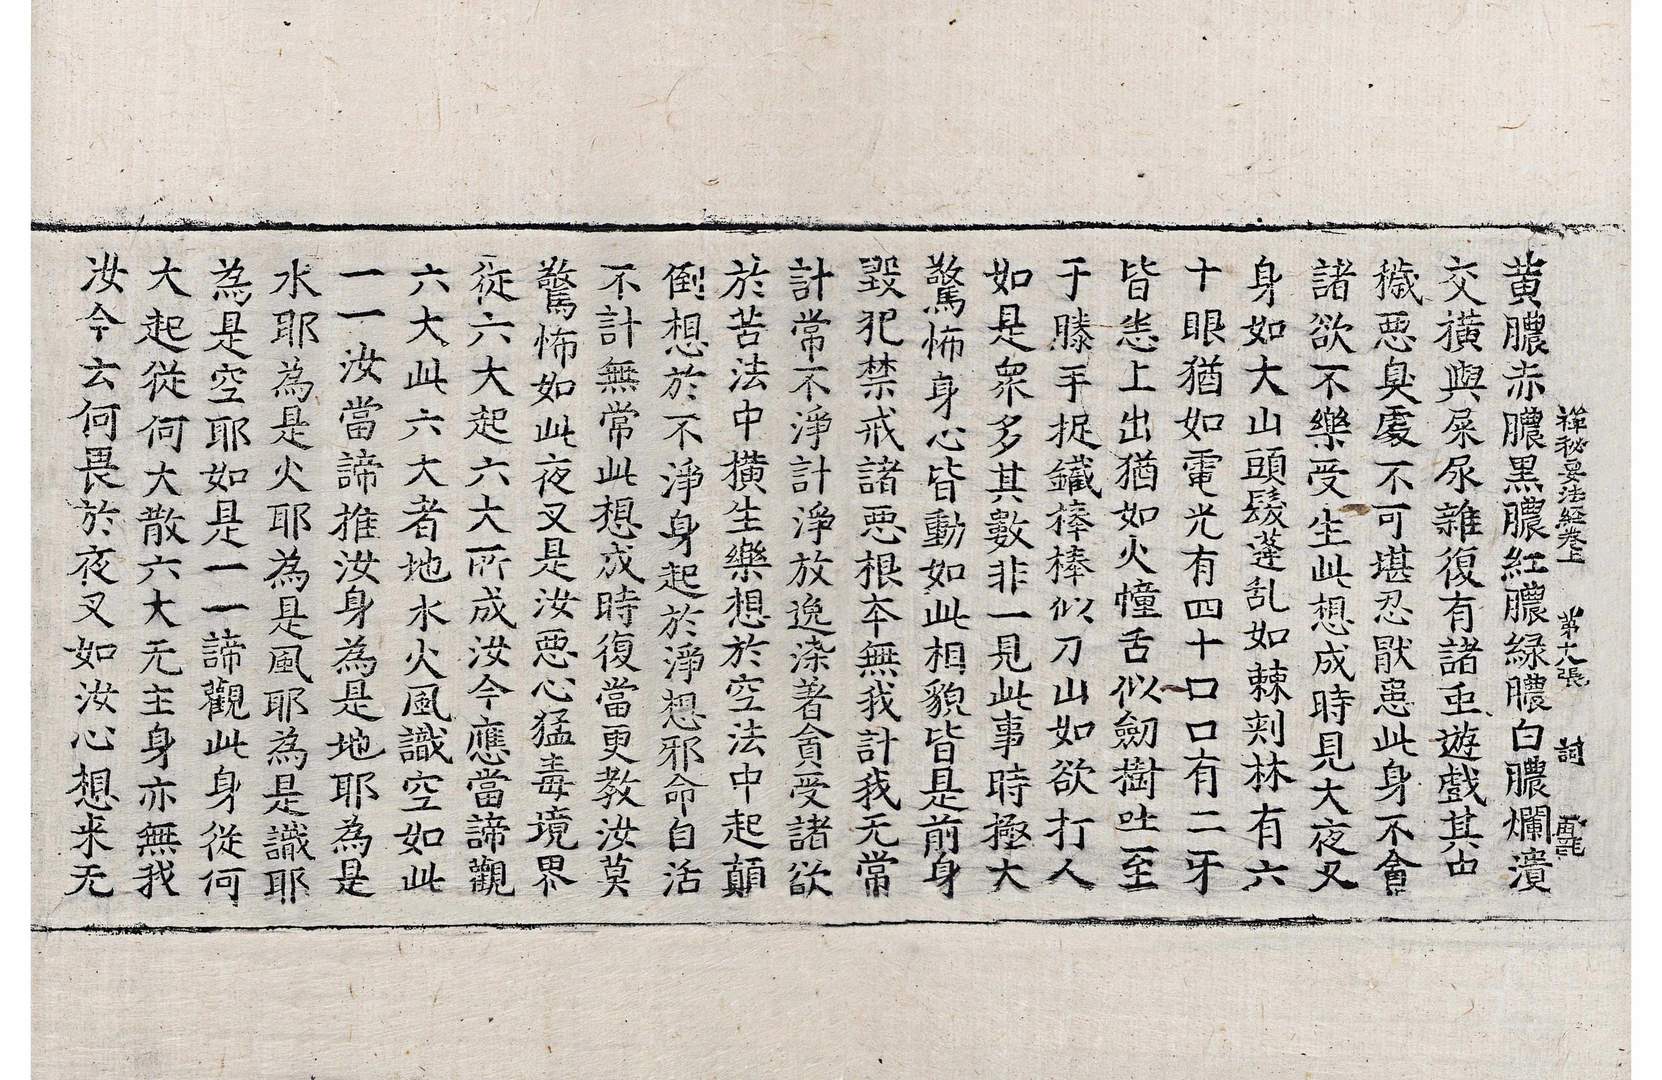 禪秘要法經卷上 第十九張 詞
黃膿赤膿黑膿紅膿綠膿白膿爛潰
交橫與屎尿雜復有諸虫遊戲其中
穢惡臭處不可堪忍猒患此身不貪
諸欲不樂受生此想成時見大夜叉
身如大山頭髮蓬乱如棘刾林有六
十眼猶如電光有四十口口有二牙
皆悉上出猶如火幢舌似劒樹吐至
于膝手捉鐵棒棒似刀山如欲打人
如是衆多其數非一見此事時極大
驚怖身心皆動如此相貌皆是前身
毀犯禁戒諸惡根夲無我計我无常
計常不淨計淨放逸染著貪受諸欲
於苦法中橫生樂想於空法中起顛
倒想於不淨身起於淨想邪命自活
不計無常此想成時復當更教汝莫
驚怖如此夜叉是汝惡心猛毒境界
従六大起六大所成汝今應當諦觀
六大此六大者地水火風識空如此
一一汝當諦推汝身為是地耶為是
水耶為是火耶為是風耶為是識耶
為是空耶如是一一諦觀此身從何
大起從何大散六大无主身亦無我
汝今云何畏於夜叉如汝心想来无